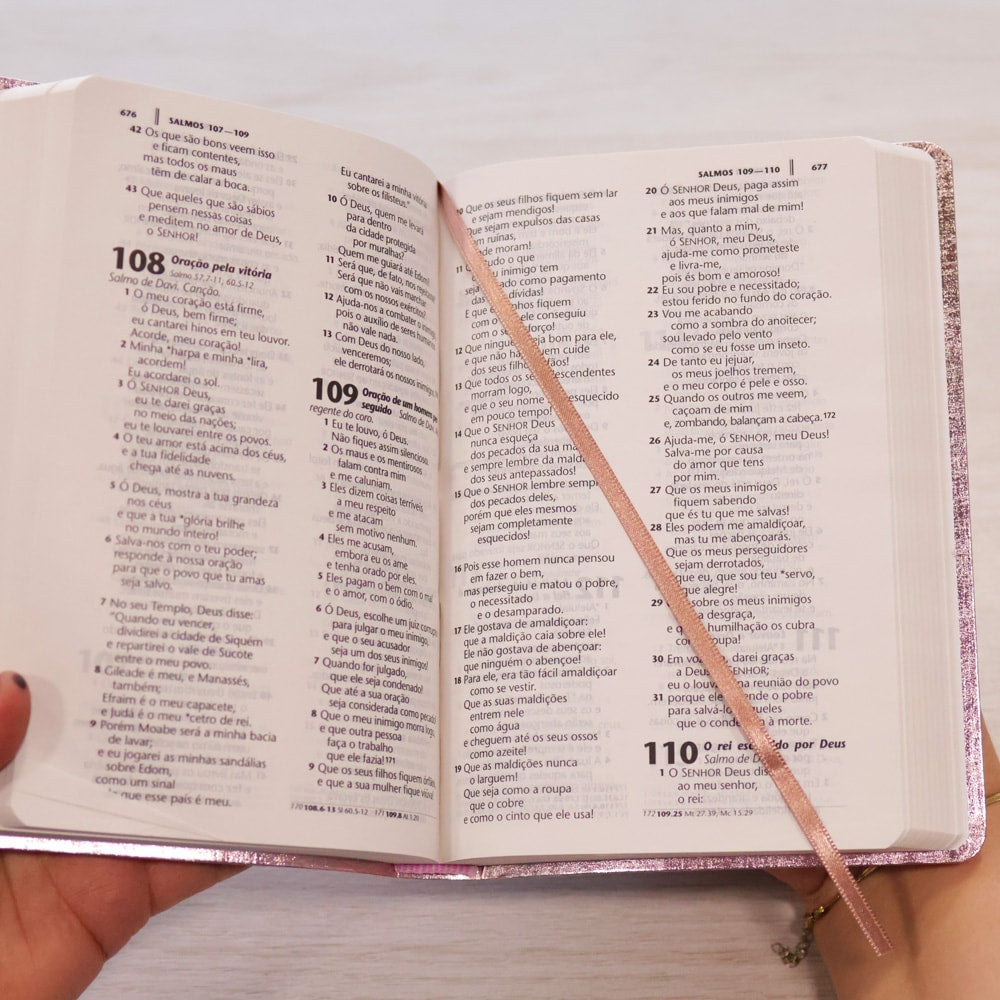 676
SALMOS 107—109
42 Os que são bons veem isso
e ficam contentes,
mas todos os maus
têm de calar a boca.
43 Que aqueles que são sábios
pensem nessas coisas
e meditem no amor de Deus,
o SENHOR!
108 Oração pela vitória
Salmo 57.7-11; 60.5-12
Salmo de Davi. Canção.
1 O meu coração está firme,
ó Deus, bem firme;
eu cantarei hinos em teu louvor.
Acorde, meu coração!
2 Minha *harpa e minha *lira,
acordem!
Eu acordarei o sol.
3 Ó SENHOR Deus,
eu te darei graças
no meio das nações;
eu te louvarei entre os povos.
4 O teu amor está acima dos céus,
e a tua fidelidade
chega até as nuvens.
5 Ó Deus, mostra a tua grandeza
nos céus
e que a tua *glória brilhe
no mundo inteiro!
6 Salva-nos com o teu poder;
responde à nossa oração
para que o povo que tu amas
seja salvo.
7 No seu Templo, Deus disse:
"Quando eu vencer,
dividirei a cidade de Siquém
e repartirei o vale de Sucote
entre o meu povo.
8 Gileade é meu, e Manassés,
também;
Efraim é o meu capacete,
e Judá é o meu *cetro de rei.
9 Porém Moabe será a minha bacia
de lavar;
e eu jogarei as minhas sandálias
sobre Edom,
como um sinal
que esse país é meu.
Eu cantarei a minha vitória
sobre os filisteus."
10 Ó Deus, quem me levará
para dentro
da cidade protegida
por muralhas?
Quem me guiará até Edom?
11 Será que, de fato, nos rejeitaste?
Será que não vais marchar
com os nossos exércitos?
12 Ajuda-nos a combater o inimigo,
pois o auxílio de seres humanos
não vale nada.
13 Com Deus do nosso lado,
venceremos;
ele derrotará os nossos inimigos.
109 Oração de um homem
seguido Salmo de Davi.
regente do coro.
1 Eu te louvo, ó Deus.
Não fiques assim silencioso.
2 Os maus e os mentirosos
falam contra mim
e me caluniam.
3 Eles dizem coisas terríveis
a meu respeito
e me atacam
sem motivo nenhum.
4 Eles me acusam,
embora eu os ame
e tenha orado por eles.
5 Eles pagam o bem com o mal
e o amor, com ódio.
6 Ó Deus, escolhe um juiz corrupto
para julgar o meu inimigo,
e que o seu acusador
seja um dos seus inimigos!
7 Quando for julgado,
que ele seja condenado!
Que até a sua oração
seja considerada como pecado!
8 Que o meu inimigo morra logo,
e que outra pessoa
faça o trabalho
que ele fazia!171
9 Que os seus filhos fiquem órfãos,
e que a sua mulher fique viúva!
170 108.6-13 Sl 60.5-12 171 109.8 At 1.20
SALMOS 109—110
677
10 Que os seus filhos fiquem sem lar
e sejam mendigos!
Que sejam expulsos das casas
em ruínas,
onde moram!
11 tudo o que
inimigo tem
seja como pagamento
das dívidas!
E que fiquem
com o ele conseguiu
com o esforço!
12 Que ninguém seja bom para ele,
e que não haja quem cuide
dos seus filhos órfãos!
13 Que todos os seus descendentes
morram logo,
e que o seu nome esquecido
em pouco tempo!
14 Que o SENHOR Deus
nunca esqueça
dos pecados da sua
e sempre lembre da
dos seus antepassados!
15 Que o SENHOR lembre sempre
dos pecados deles,
porém que eles mesmos
sejam completamente
esquecidos!
16 Pois esse homem nunca pensou
em fazer o bem,
mas perseguiu e matou o pobre,
o necessitado
e o desamparado.
17 Ele gostava de amaldiçoar:
que a maldição caia sobre ele!
Ele não gostava de abençoar:
que ninguém o abençoe!
18 Para ele, era tão fácil amaldiçoar
como se vestir.
Que as suas maldições
entrem nele
como água
e cheguem até os seus ossos
como azeite!
19 Que as maldições nunca
o larguem!
Que seja como a roupa
que o cobre
e como o cinto que ele usa!
20 Ó SENHOR Deus, paga assim
aos meus inimigos
e aos que falam mal de mim!
21 Mas, quanto a mim,
ó SENHOR, meu Deus,
ajuda-me como prometeste
e livra-me,
pois és bom e amoroso!
22 Eu sou pobre e necessitado;
estou ferido no fundo do coração.
23 Vou me acabando
como a sombra do anoitecer;
sou levado pelo vento
como se eu fosse um inseto.
24 De tanto eu jejuar,
os meus joelhos tremem,
e o meu corpo é pele e osso.
25 Quando os outros me veem,
caçoam de mim
e, zombando, balançam a cabeça.172
26 Ajuda-me, ó SENHOR, meu Deus!
Salva-me por causa
do amor que tens
por mim.
27 Que os meus inimigos
fiquem sabendo
que és tu que me salvas!
28 Eles podem me amaldiçoar,
mas tu me abençoarás.
Que os meus perseguidores
sejam derrotados,
que eu, que sou teu *servo,
que alegre!
29 sobre os meus inimigos
a desgraça,
e que a humilhação os cubra
como roupa!
30 Em voz alta, darei graças
a Deus, o SENHOR;
eu o louvarei na reunião do povo
31 porque ele defende o pobre
para salvá-lo daqueles
que o condenam à morte.
110 O rei escolhido por Deus
Salmo de Davi.
1 O SENHOR Deus disse
ao meu senhor,
o rei:
172 109.25 Mt 27.39; Mc 15.29